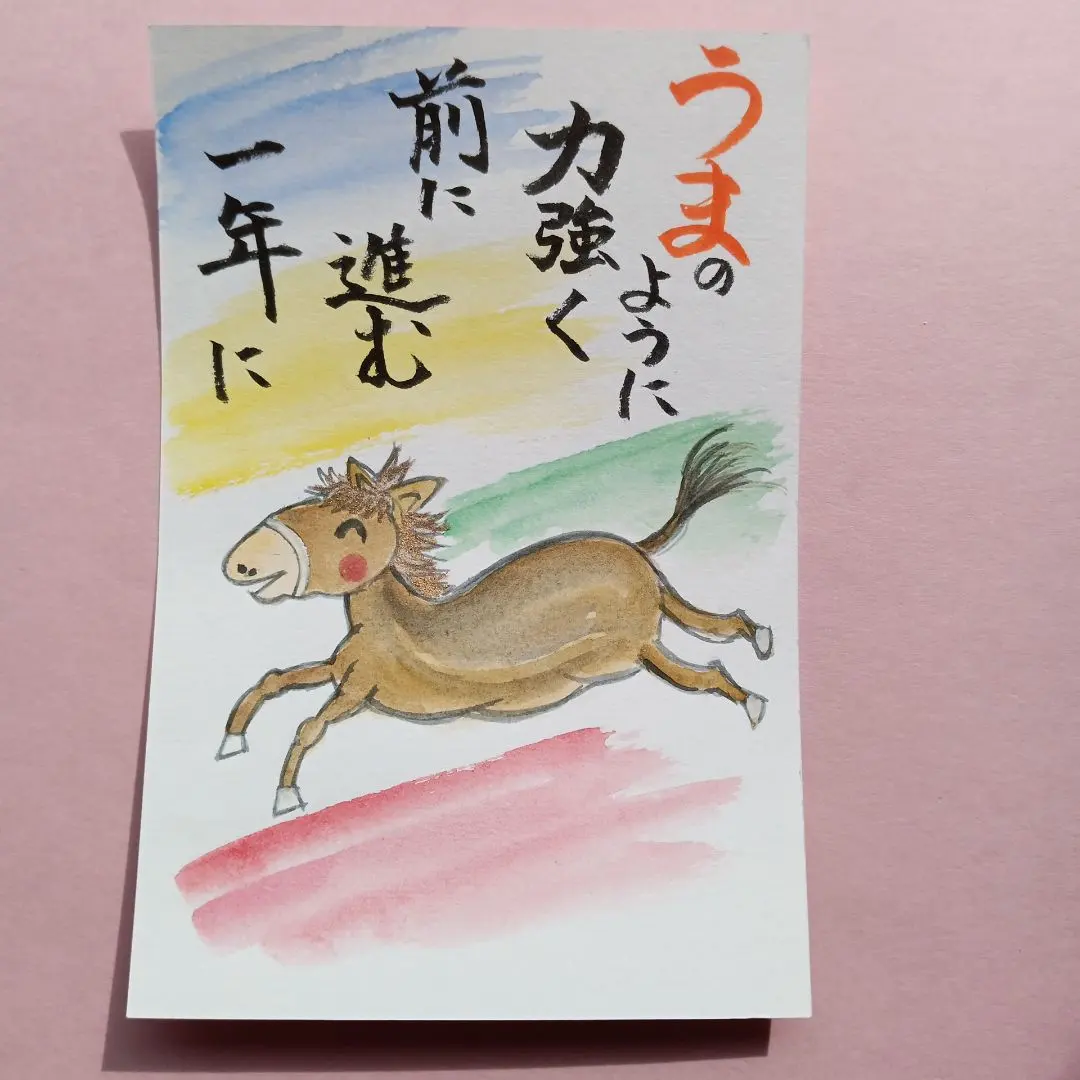 うまの
ように
力強く
前に
進む
一年に